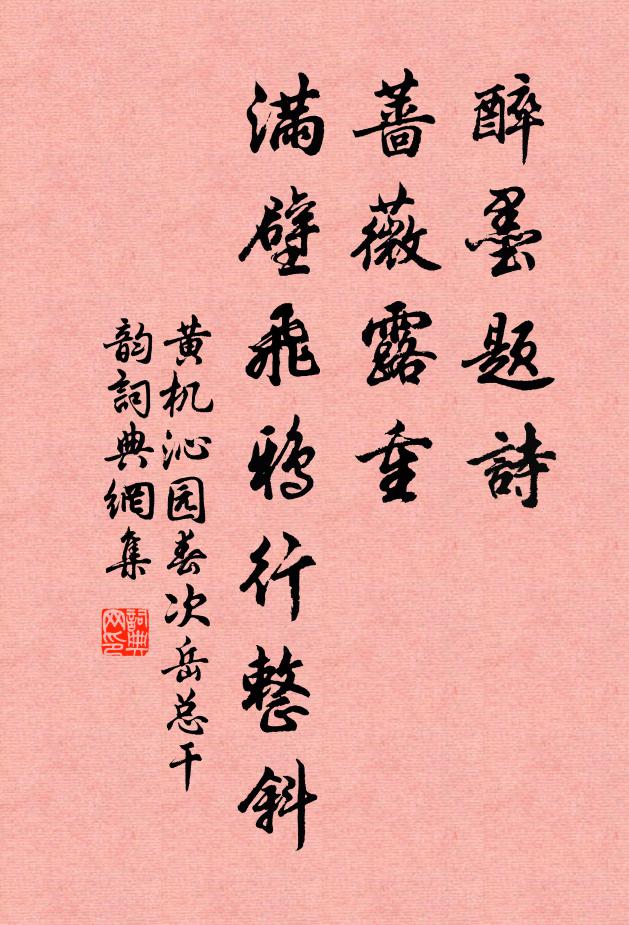 醉墨题詩
蔷薇露重
满壁飛鸦行整斜
黄机沁园春次岳总干
韵詞典網集
詞典
网印